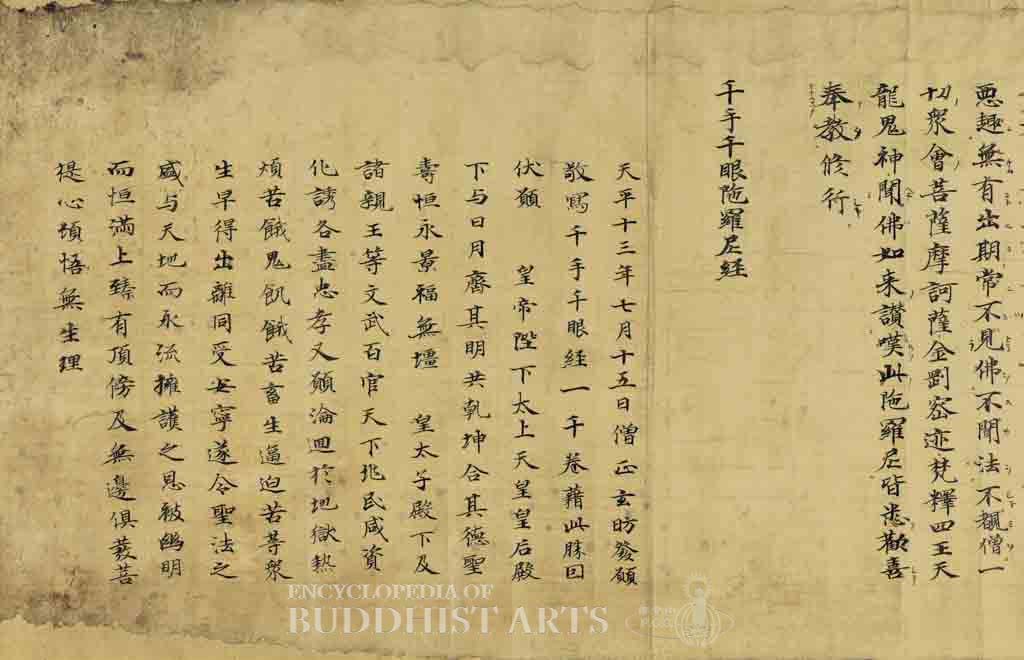 惡趣無有出期常不見佛不聞法不覩僧一
切眾會菩薩摩訶薩金剛密迹梵釋四王天
龍鬼神聞佛如来讃嘆此陁羅尼皆悉歡喜
奉教修行
千手千眼陁羅尼経
天平十三年七月十五日僧正玄昉發願
敬寫千手千眼経一千卷藉此勝因
伏願 皇帝陛下太上天皇皇后殿
下与日月齊其明共乹坤合其德聖
壽恒永景福無壃 皇太子殿下及
諸親王等文武百官天下兆民咸資
化誘各盡忠孝又願淪迴於地獄熱
煩苦餓鬼飢餓苦畜生逼迫苦等眾
生早得出離同受安寧遂令聖法之
盛与天地而永流擁護之恩被幽明
而恒滿上臻有頂傍及無邊俱發菩
提心頓悟無生理
ENCYCLOPEDIA OF
BUDDHIST ARTS